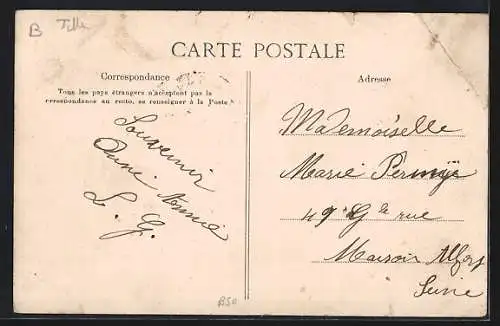 B Tille
CARTE POSTALE
Correspondance
Tous les pays étrangers n'acceptent pas la
correspondance au recto, se renseigner à la Poste
Souvenir
L. G.
Adresse
Mademoiselle
Marie
49 Gde rue
Maison Alfort
Seine
B50